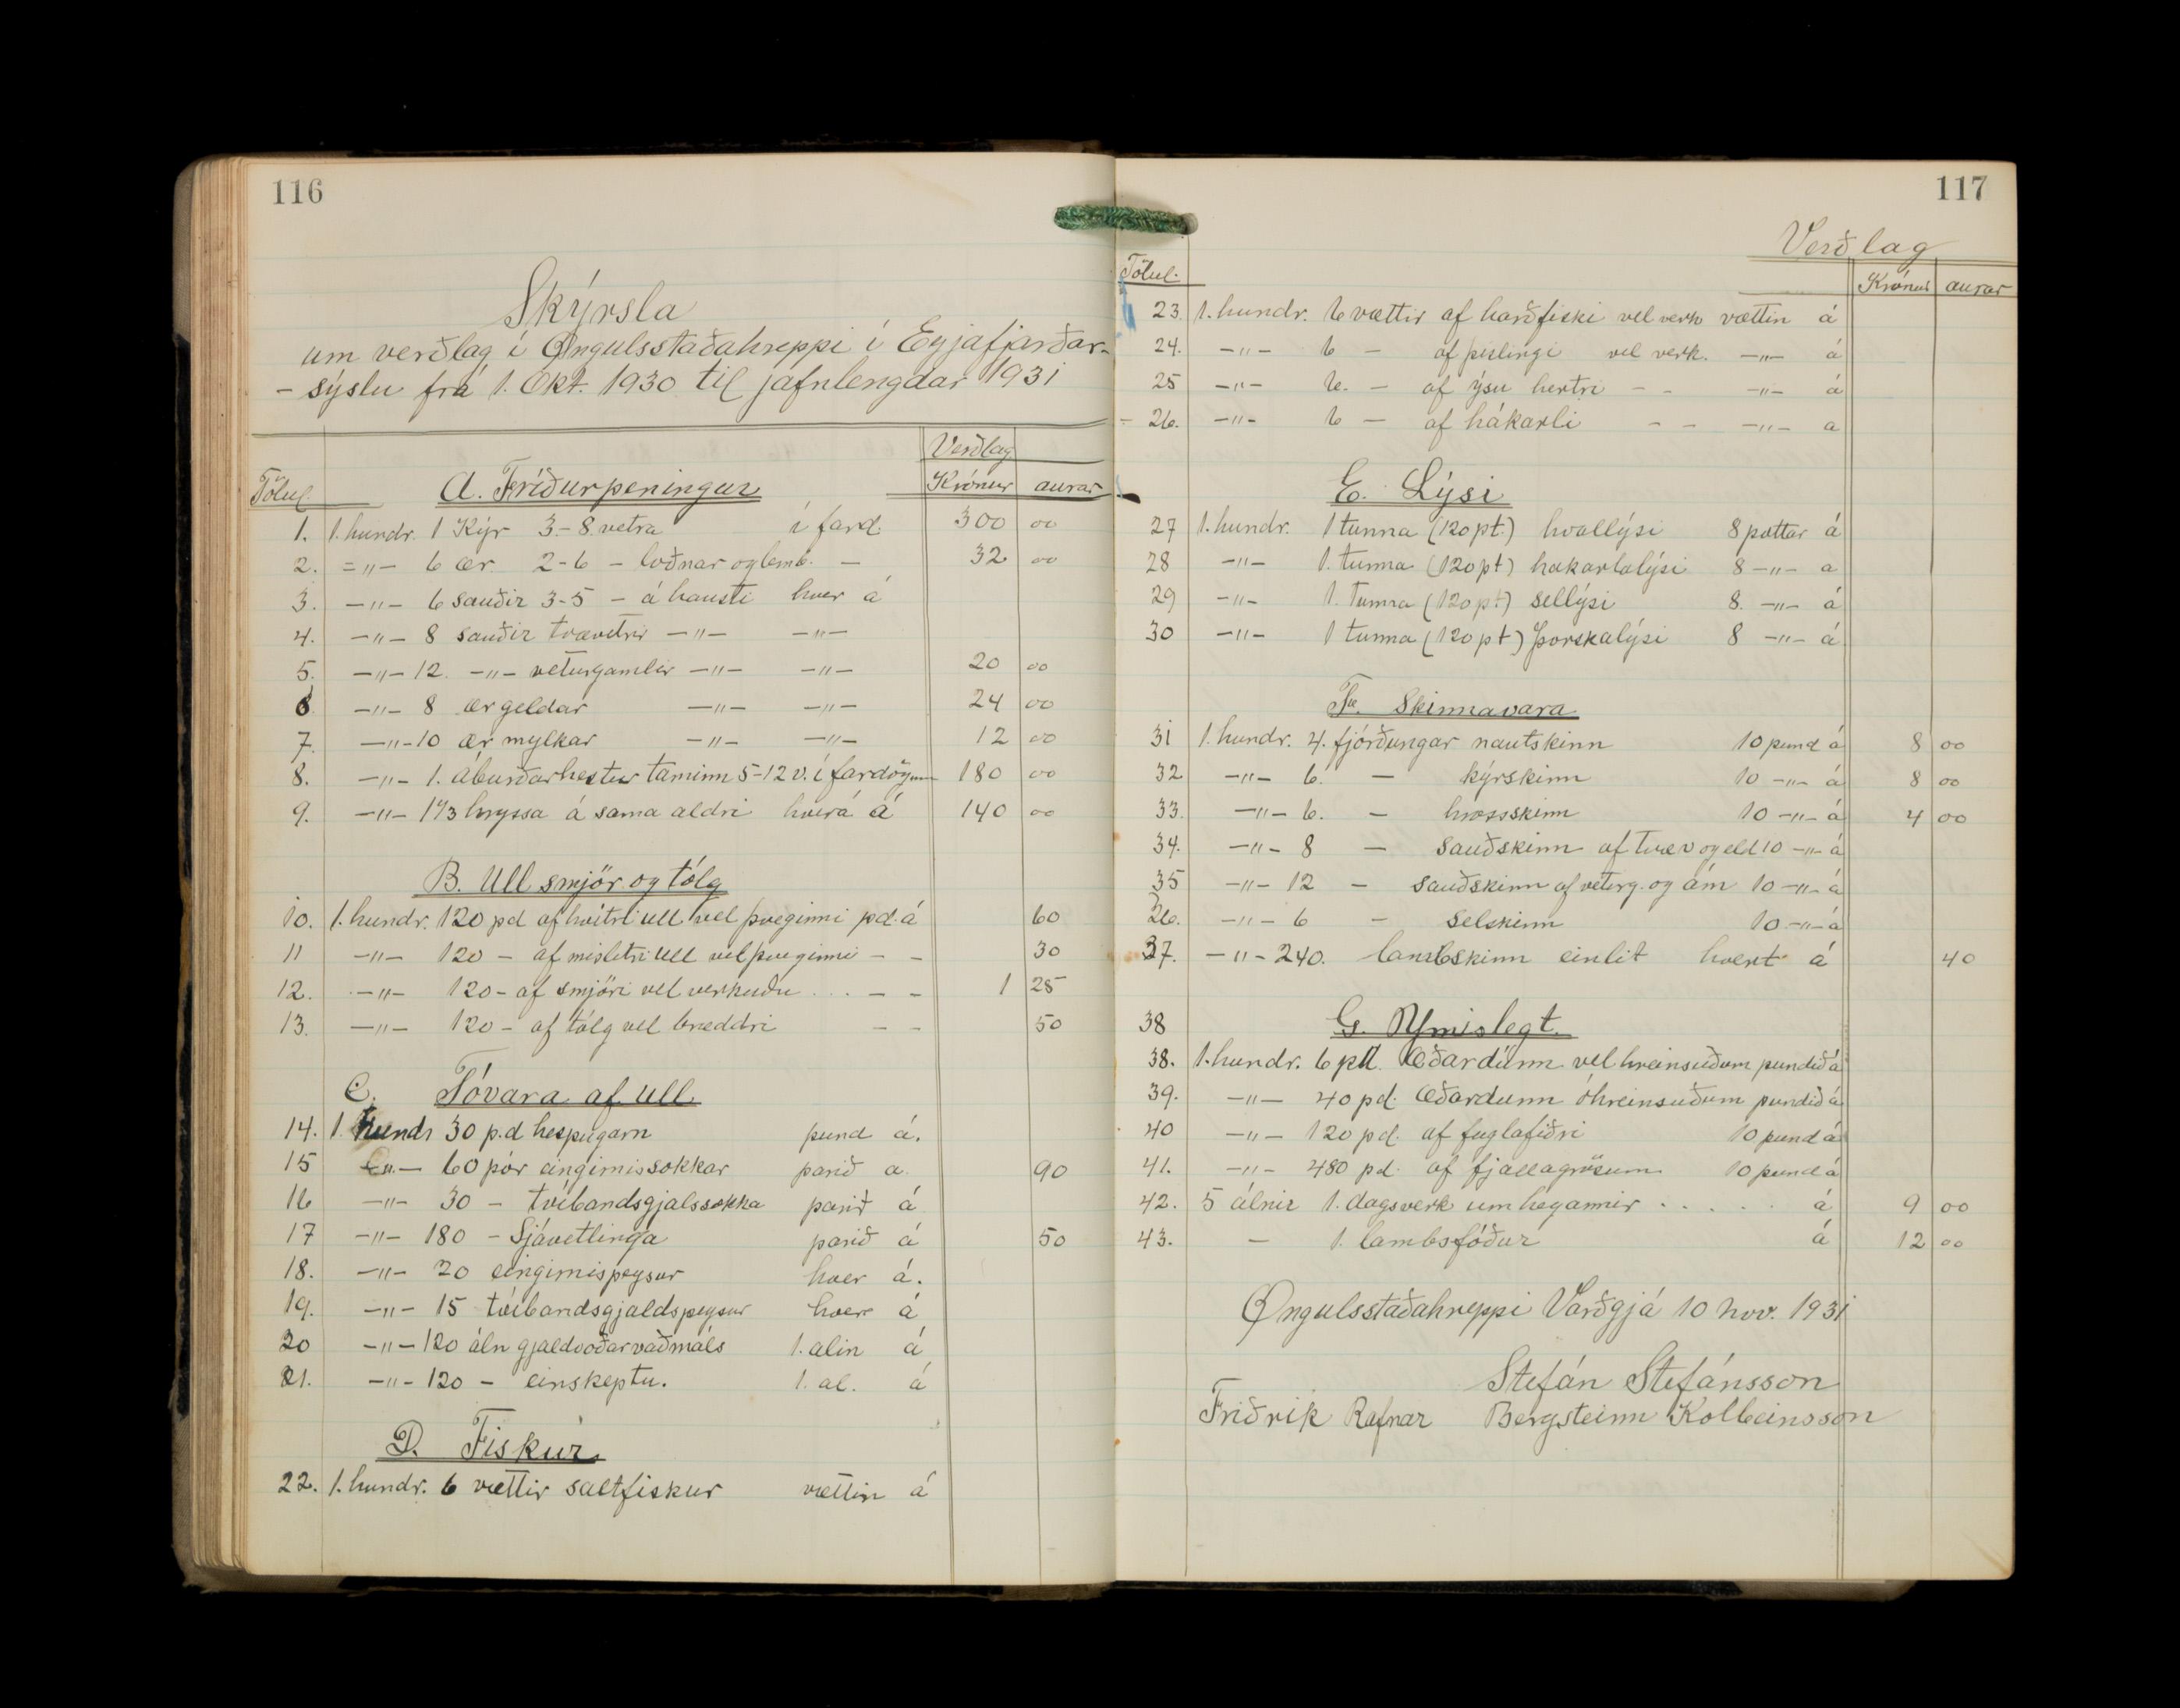 116
Skýrsla
um verðlag í Öngulsstaðahreppi í Eyjafjarðar-
- sýslu frá 1. Okt. 1930 til jafnlengdar 1931
Verðlag
Tölul. A. Fríðurpeningur Krónur aurar
1. 1. hundr. 1 Kýr 3-8 vetra í fard. 300 00
2. =„- 6 ær 2-6 - loðnar og lemb. - 32 00
3. -„- 6 sauðir 3-5 - á hausti hver á
4. -„- 8 sauðir tvævetrir -„- -„-
5. -„- 12. -„- veturgamlir -„- -„- 20 00
6 -„- 8 ær geldar -„- -„- 24 00
7. -„- 10 ær mylkar -„- -„- 12 00
8. -„- 1. áburðarhestur taminn 5-12 v. í fardögum 180 00
9. -„- 1 1/3 hryssa á sama aldri hver á á 140 00
B. Ull smjör og tólg
10. 1. hundr. 120 pd af hvítri ull vel þveginni pd. á 60
11 -„- 120 - af mislitri ull vel þveginni - - 30
12. -„- 120 - af smjöri vel verkuðu . . . - - 1 25
13. -„- 120 - af tólg vel bræddri - - 50
C. Tóvara af ull.
14. 1. hundr 30 p.d hespugarn pund á.
15 -„- 60 pör eingirnissokkar parið a. 90
16 -„- 30 - tvíbandsgjalssokka parið á
17 -„- 180 - Sjávetlinga parið á 50
18. -„- 20 eingirnispeysur hver á.
19. -„- 15 tvíbandsgjaldspeysur hver á
20 -„- 120 áln gjaldvoðarvaðmáls 1. alin á
21. -„- 120 - einskeptu. 1. al. á
D. Fiskur.
22. 1. hundr. 6 vættir saltfiskur vættin á
117
Verðlag
Tölul. Krónur aurar
23. 1. hundr. 6 vættir af harðfiski vel verk vættin á
24. -„- 6 - af þislingi vel verk. -„- á
25 -„- 6. - af ýsu hertri - - -„- á
- 26. -„- 6 - af hákarli - - -„- a
E. Lýsi
27 1. hundr. 1 tunna (120 pt.) hvallýsi 8 pottar á
28 -„- 1. tunna (120 pt) hakarlalýsi 8 -„- a
29 -„- 1. tunna (120 pt) sellýsi 8. -„- á
30 -„- 1 tunna (120 pt) þorskalýsi 8 -„- á
F. Skinnavara
31 1. hundr. 4. fjórðungar nautskinn 10 pund á 8 00
32 -„- 6. - kýrskinn 10 -„- á 8 00
33. -„- 6. - hrossskinn 10 -„- á 4 00
34. -„- 8 - Sauðskinn af tvæv og eld 10 -„- á
35 -„- 12 - sauðskinn af veturg. og ám 10 -„- á
26. -„- 6 - selskinn 10 -„- á
37. -„- 240. lambskinn einlit hvert á 40
38 G. Ymislegt.
38. 1. hundr. 6 pd. Æðardúnn vel hreinsuðum pundið á
39. -„- 40 pd. Æðardunn óhreinsuðum pundið á
40 -„- 120 pd. af fuglafiðri 10 pund á
41. -„- 480 pd. af fjallagrösum 10 pund á
42. 5 álnir 1. dagsverk um heyannir . . . . . á 9 00
43. - 1. lambsfóður á 12 00
Öngulsstaðahreppi Varðgjá 10 nov. 1931
Stefán Stefánsson
Friðrik Rafnar Bergsteinn Kolbeinsson